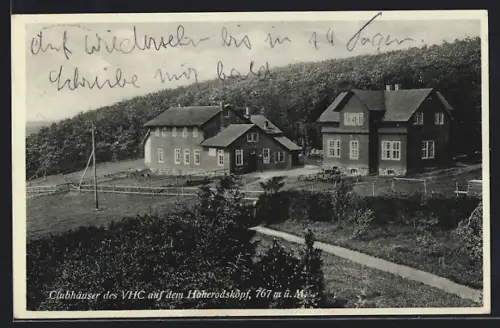 Auf Wiedersehn bis in 14 Tagen.
Schreibe mir bald
Clubhäuser des VHC auf dem Hoherodskopf, 767 m ü. M.